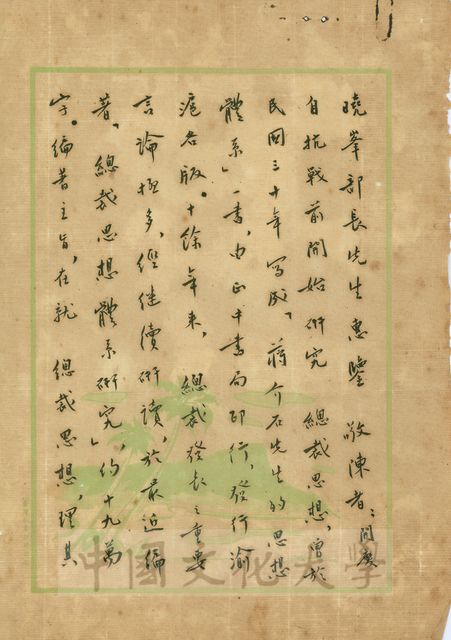 曉峯部長先生惠鑒 敬陳者:閒處
自抗戰前開始研究 總裁思想,曾於
民國三十年寫成「蔣介石先生的思想
體系」一書,由正中書局印行,發行渝
滬各版。十餘年來, 總裁發表之重要
言論極多,經繼續研讀,於最近編
著「總裁思想體系研究」,約十九萬
字。編著主旨,在就 總裁思想,理其
中國文化大學